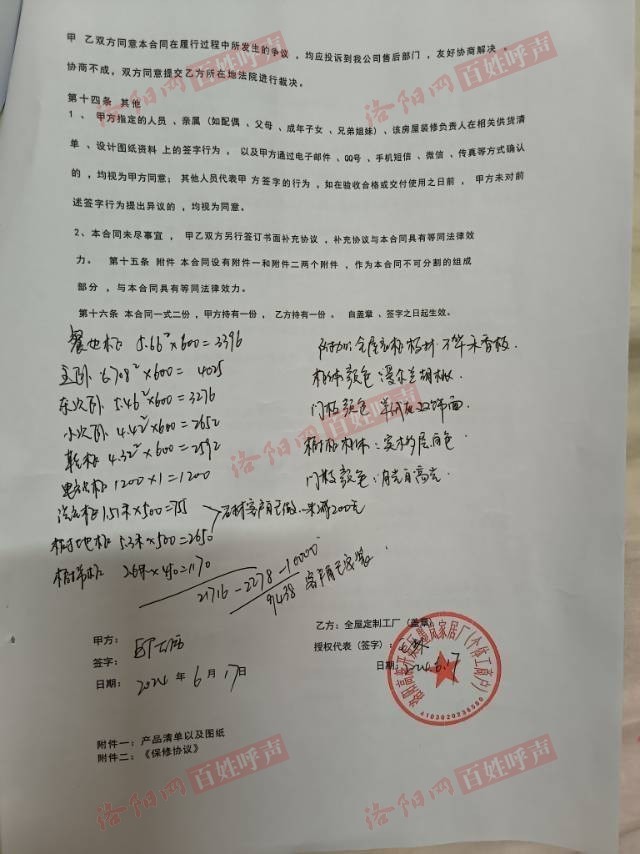 甲 乙双方同意本合同在履行过程中所发生的争议 ，均应投诉到我公司售后部门 ，友好协商解决 。
协商不成，双方同意提交乙方所在地法院进行裁决。
第十四条 其他
1 、 甲方指定的人员 、亲属 (如配偶 、父母 、成年子女 、兄弟姐妹) 、该房屋装修负责人在相关供货清
单 、设计图纸资料 上的签字行为 ， 以及甲方通过电子邮件 、QQ号 、手机短信 、微信 、传真等方式确认
的 ，均视为甲方同意； 其他人员代表甲 方签字的行为 ，如在验收合格或交付使用之日前 ， 甲方未对前
述签字行为提出异议的 ，均视为同意。
2、本合同未尽事宜 ， 甲乙双方另行签订书面补充协议 ，补充协议与本合同具有等同法律效
力。 第十五条 附件 本合同设有附件一和附件二两个附件 ，作为本合同不可分割的组成
部分 ，与本合同具有等同法律效力。
第十六条 本合同一式二份，甲方持有一份 ， 乙方持有一份 。 自盖章 、签字之日起生效。
餐边柜 5.66²×600=3396
主卧 6.708²×600= 4025
东次卧 5.46²×600=3276
小次卧 4.42²×600=2652
鞋柜 4.32²×600=2592
电 1200×1=1200
1.51米×500=755
橱地柜 5.3米×500=2650
橱吊柜 2.6米×450=1170
石材客户自己做 一米减200元
21716-2278-10000
9438 客户自己安装
附加: 全屋衣柜板材
柜体颜色:
门板颜色
橱柜柜体: 实木多层白色
门板颜色: 月光白高光
甲方:
签字:
日期: 2024 年 6 月 17日
乙方: 全屋定制工厂 (盖章)
授权代表 (签字) :
日期: 2024.6.17
4103020236580
附件一: 产品清单以及图纸
附件二: 《保修协议》
洛阳网 百姓呼声
洛阳网 百姓呼声
洛阳网 百姓呼声
洛阳网 百姓呼声
洛阳网 百姓呼声